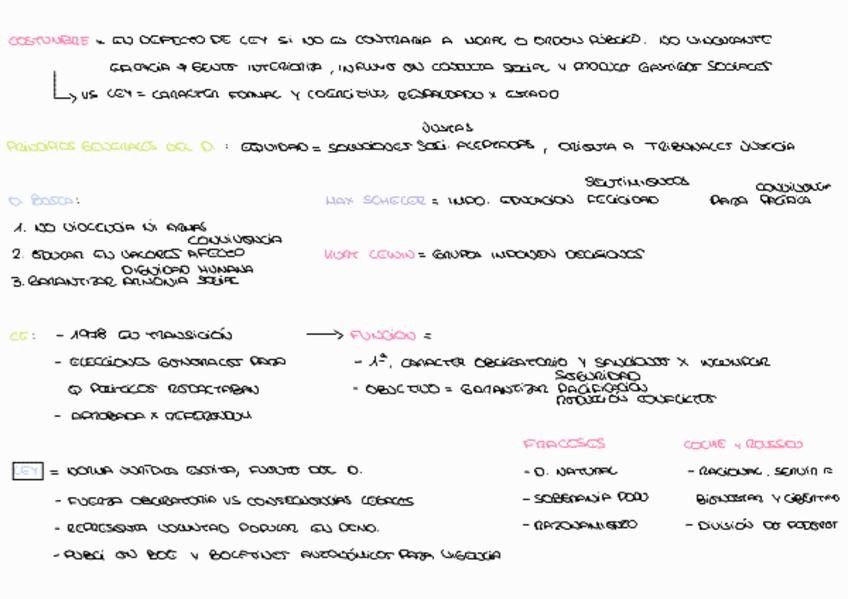 COSTUMBRE = EN DEFECTO DE LEY SI NO ES CONTRARIA A MORAL O ORDEN PÚBLICO. NO VINCULANTE
GENTE INTERIORIZA, INFLUYE EN CONDUCTA SOCIAL Y PRODUCE CASTIGOS SOCIALES
VS LEY = CARACTER FORMAL Y COERCITIVO, RESPALDADO X ESTADO
JUSTAS
PRINCIPIOS GENERALES DEL D. : EQUIDAD = SOLUCIONES SOCI. ACEPTADAS, ORIENTA A TRIBUNALES JUSTICIA
SENTIMIENTOS CONVIVENCIA
D. BUSCA: MAX SCHELER = IMPO. EDUCACION FELICIDAD PARA PACÍFICA
1. NO VIOLENCIA NI ARMAS
CONVIVENCIA
2. EDUCAR EN VALORES AFECTO KURT LEWIN = GRUPOS IMPONEN DECISIONES
DIGNIDAD HUMANA
3. GARANTIZAR ARMONIA SOCIAL
CE: - 1978 EN TRANSICIÓN → FUNCION =
- ELECCIONES GENERALES PARA - 1ª, CARACTER OBLIGATORIO Y SANCIONES X INCUMPLIR
SEGURIDAD
Q POLITICOS REDACTARAN - OBJETIVO = GARANTIZAR PACIFICACIÓN
REDUCCIÓN CONFLICTOS
- APROBADA X REFERENDUM
FRACESES LOCKE Y ROUSSEU
LEY = NORMA JURÍDICA ESCRITA, FUENTE DEL D. - D. NATURAL - RACIONAL. SERVIR A
- FUERZA OBLIGATORIA VS CONSECUENCIAS LEGALES - SOBERANÍA BIENESTAR Y LIBERTAD
- REPRESENTA VOLUNTAD POPULAR EN DEMO. - RAZONAMIENTO - DIVISIÓN DE PODERES
- PUBLI EN BOE Y BOLETINES AUTONÓMICOS PARA VIGENCIA